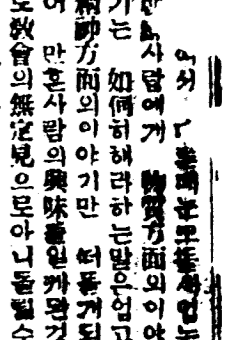 에서
사람에게 物質方面의이야
기는 如何히해라하는말은업고
精神方面의이야기만 떠들게되
어 만흔사람의興味를일케된것
도敎會의無定見으로아니돌릴수